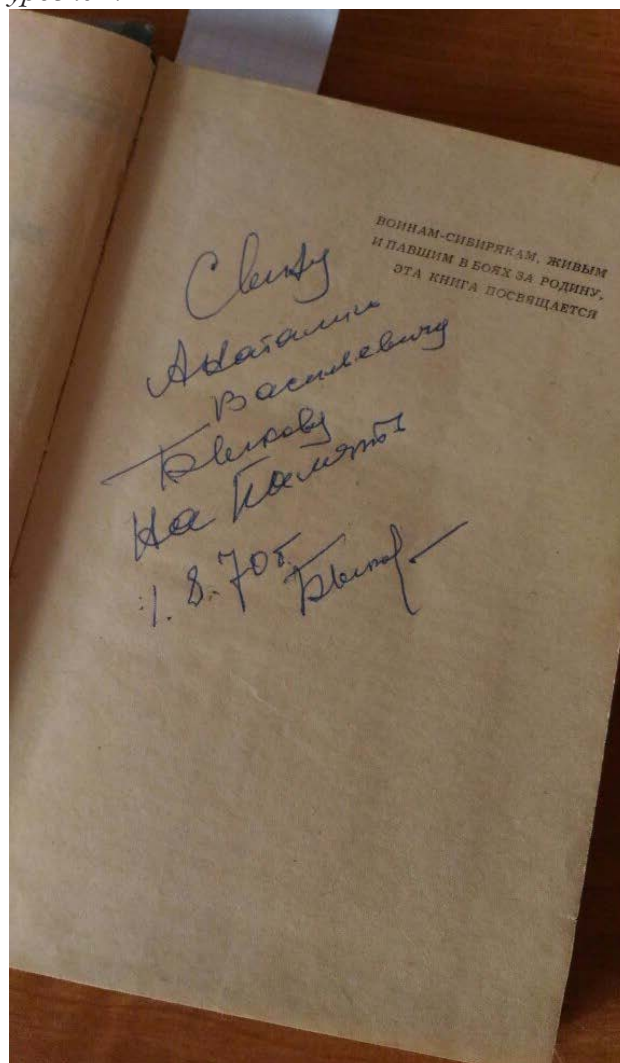 ВОИНАМ-СИБИРЯКАМ, ЖИВЫМ
И ПАВШИМ В БОЯХ ЗА РОДИНУ,
ЭТА КНИГА ПОСВЯЩАЕТСЯ
Анаталию
Василевичу
Быкову
На Память
1.8.70г.
Быков